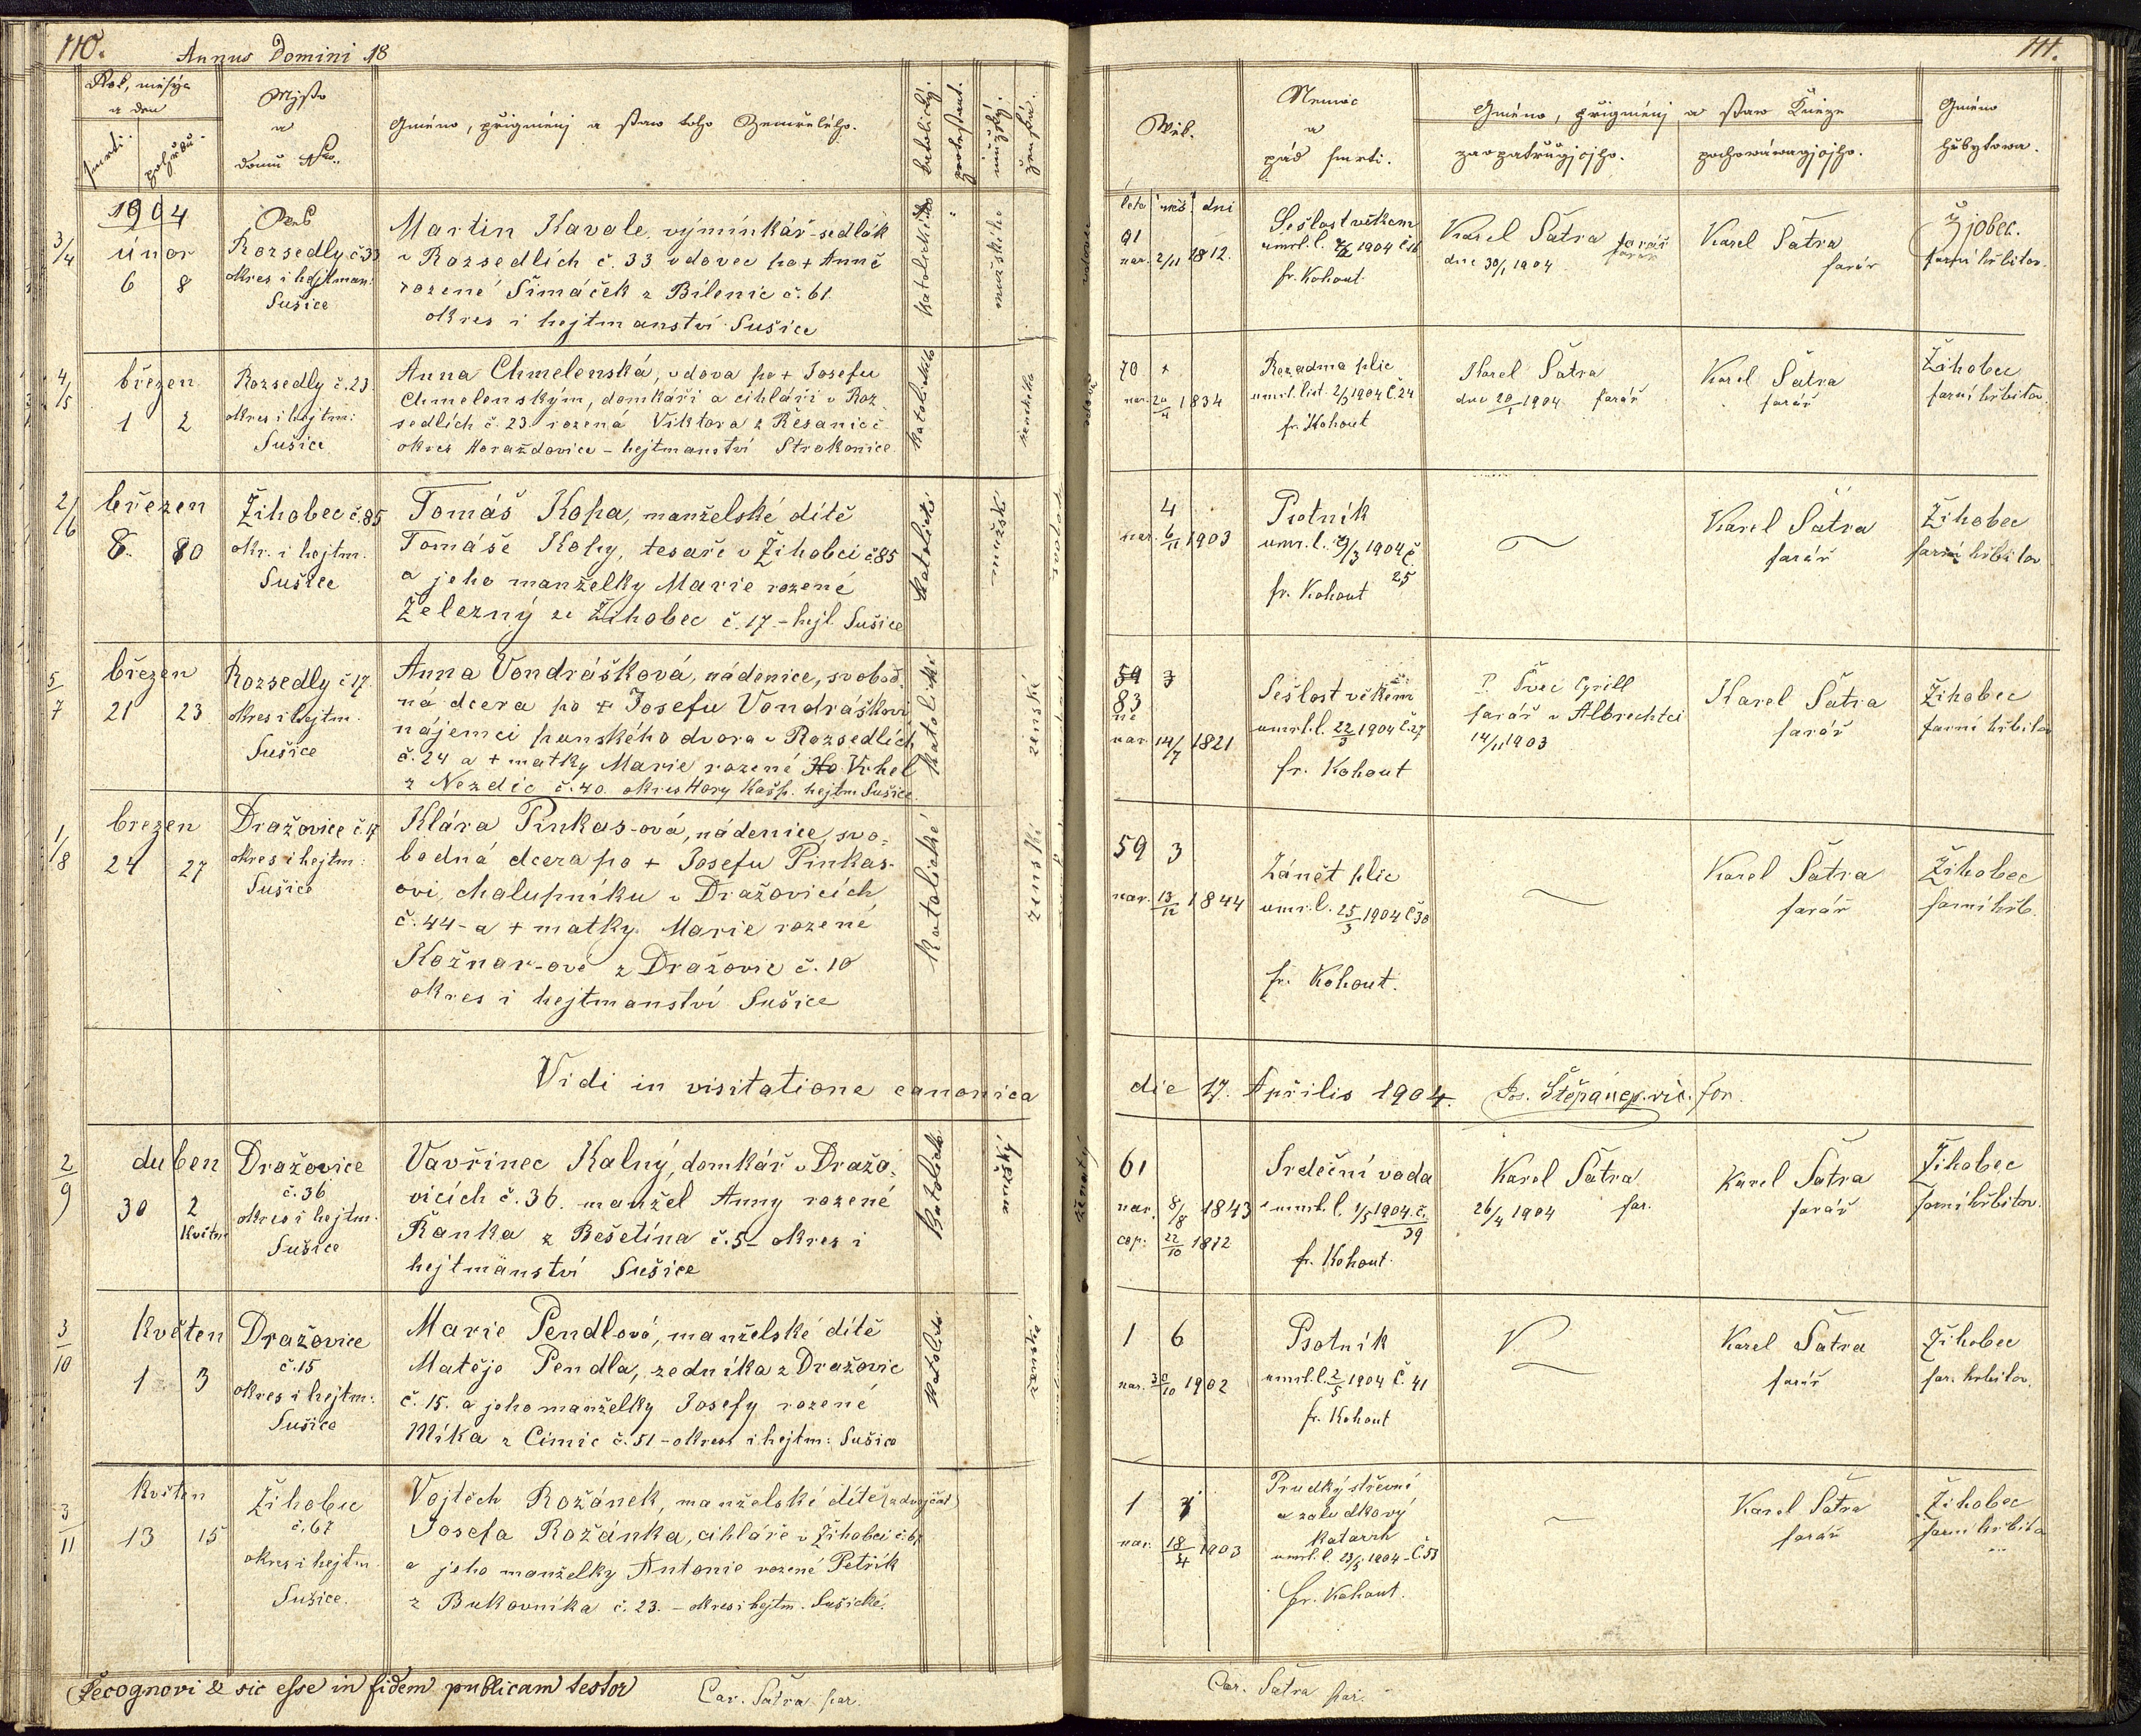 110.
Annus Domini 18
Rok, mісýc
a den
smrti.
pohřbu.
Mjsto
a
domů Nro.
Gméno, přigménj a staw toho Zemřelého.
katolický.
protestant.
mužský.
ženská.
1904
3/4
únor
6 8
Ves
Rozsedly č. 33
okres i hejtman:
Sušice
Martin Kavale, výminkář-sedlák
v Rozsedlích č. 33 vdovec po + Anně
rozené Šimáček z Bílenic č. 61
okres i hejtmanství Sušice
katolického
mužského
vdovec
4/5
březen
1 2
Rozsedly č. 23
okres i hejtm:
Sušice
Anna Chmelenská, vdova po + Josefu
Chmelenským, domkáři a cihláři v Roz
sedlích č. 23 rozená Viktora z Řesanic č
okres Horažďovice - hejtmanství Strakonice.
katolického
ženského
2/6
březen
8. 10
Žihobec č. 85
okr. i hejtm.
Sušice
Tomáš Kopa, manželské dítě
Tomáše Kopy, tesaře v Žihobci č. 85
a jeho manželky Marie rozené
Železný ze Žihobec č. 17 - hejt. Sušice
katolické
mužské
5/7
březen
21 23
Rozsedly č. 17.
okres i hejtm.
Sušice
Anna Vondrášková, nádenice, svobod-
ná dcera po + Josefu Vondráškovi
nájemci panského dvora v Rozsedlích
č. 24 a + matky Marie rozené Ho Vrhel
z Nezdic č. 40. okres Hory Kašp. hejtm Sušice.
katolické
ženské
1/8
brezen
24 27
Dražovice č. 17
okres i hejtm:
Sušice
Klára Pinkas-ová, nádenice, svo-
bodná dcera po + Josefu Pinkas-
ovi, chalupníku v Dražovicích
č. 44 - a + matky Marie rozené
Kožnar-ové z Dražovic č. 10
okres i hejtmanství Sušice
katolické
ženské
Vidi in visitatione canonica
2/9
duben
30 2
květn
Dražovice
č. 36
okres i hejtm.
Sušice
Vavřinec Kalný, domkář v Dražo-
vicích č. 36. manžel Anny rozené
Řanka z Bešetína č. 5 - okres i
hejtmanství Sušice
katolické
mužský
ženatý
3/10
Květen
1 3
Dražovice
č. 15
okres i hejtm:
Sušice
Marie Pendlová, manželské dítě
Matěje Pendla, zedníka z Dražovic
č. 15. a jeho manželky Josefy rozené
Míka z Čimic č. 51 - okres i hejtm: Sušice
katolické
ženské
3/11
Květen
13 15
Žihobec
č. 67
okres i hejtm.
Sušice.
Vojtěch Rožánek, manželské dítě (z dvojčat)
Josefa Rožánka, cihláře v Žihobci č. 67
a jeho manželky Antonie rozené Petřík
z Bukovníka č. 23. - okres i hejtm. Sušické.
Recognovi & sic esse in fidem publicam testor
Car. Šatra par.
111.
Wěk.
Nemoc
a
pád smrti.
Gméno, přigménj a staw Kněze
zaopatřugjcjho.
pochowáwagjcjho.
Gméno
hřbytowa.
leta měs. dni
91
nar. 2/11 1812.
Sešlost věkem
umrl. l. 7/2 1904 č. 16
fr. Kohout
Karel Šatra farář
dne 30/1 1904
Karel Šatra
farář
Zjobec.
farní hřbitov.
70 +
nar. 20/4 1834
Rozedma plic
umrl. list. 2/3 1904 č. 24
fr. Kohout
Karel Šatra
dne 20/1 1904 farář
Karel Šatra
farář
Žihobec
farní hřbitov.
4
nar. 6/11 1903
Psotník
umr. l. 9/3 1904 č.
25
fr. Kohout
Karel Šatra
farář
Žihobec
farní hřbitov
59 3
83
nar. 14/7 1821
Sešlost věkem
umrl. l. 22/3 1904 č. 27
fr. Kohout
P. Švec Cyrill
farář v Albrechtci
14/11 1903
Karel Šatra
farář
Žihobec
farní hřbitov
59 3
nar. 13/12 1844
Zánět plic
umr. l. 25/3 1904 č. 30
fr. Kohout.
Karel Šatra
farář
Žihobec
farní hřb.
die 17. Aprilis 1904. Jos. Štěpánek. vic. for.
61
nar. 8/8 1843
cop: 22/10 1872
Srdeční vada
umrl. l. 1/5 1904. č.
39
fr. Kohout.
Karel Šatra
26/4 1904 far.
Karel Šatra
farář
Žihobec
farní hřbitov.
1 6
nar. 30/10 1902
Psotník
umrl. l. 2/5 1904 č. 41
fr. Kohout
Karel Šatra
farář
Žihobec
far. hřbitov.
1
nar. 18/4 1903
Prudký střevní
a žaludkový
katarrh
umrl. l. 13/5 1904 - č. 53
fr. Kohout.
Karel Šatra
farář
Žihobec
farní hřbito
Car. Šatra par.